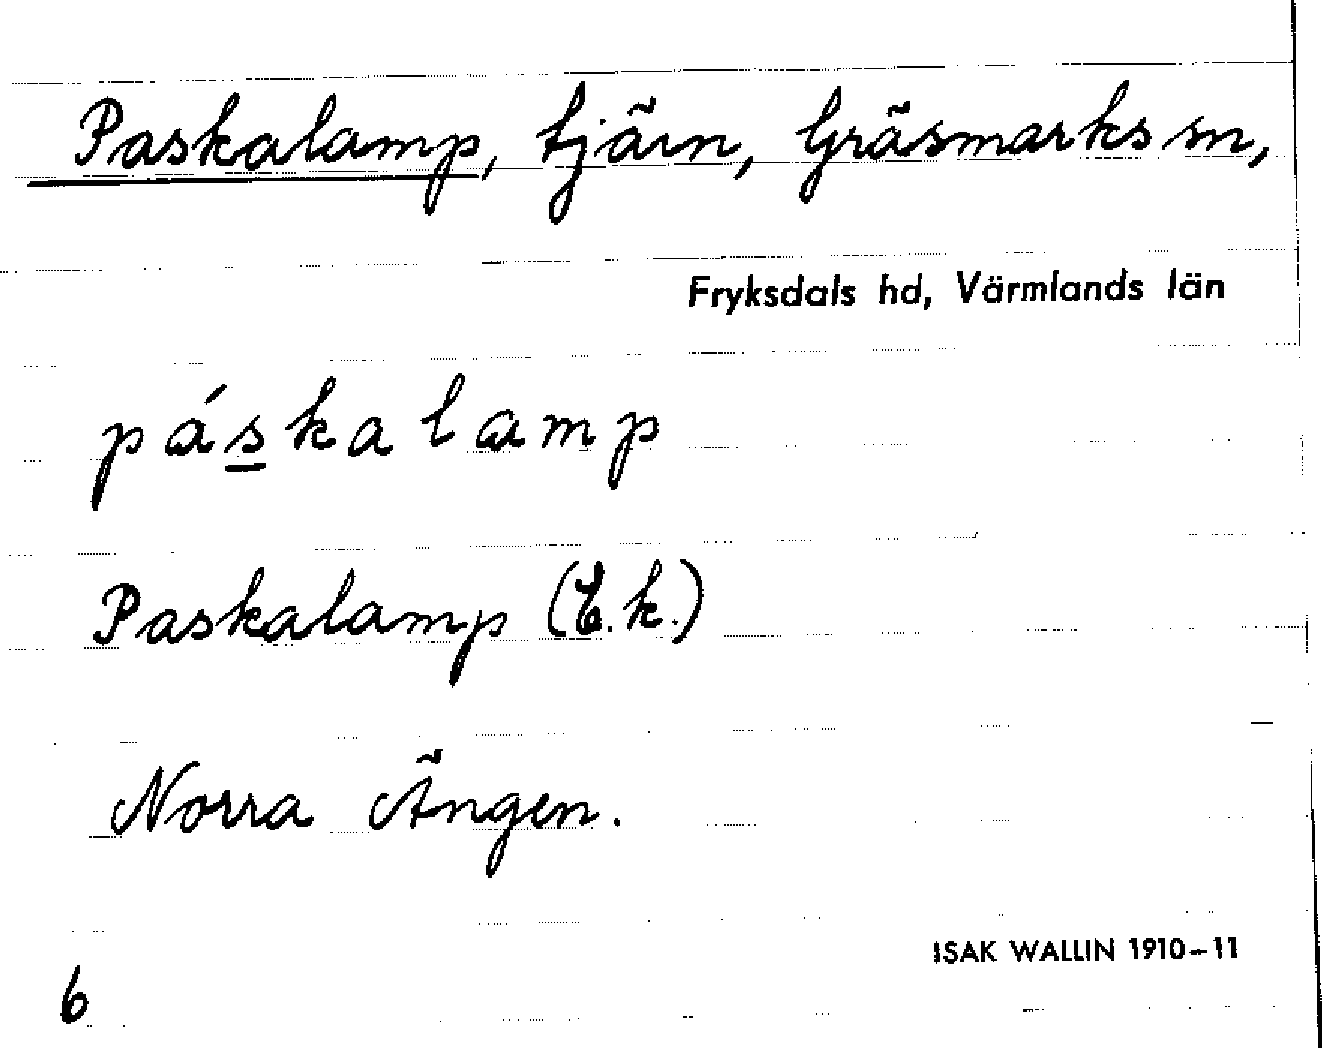 Paskalamp, tjärn, Gräsmarks sn,
Fryksdals hd, Värmlands län
páskalamp
Paskalamp (E.k.)
Norra Ängen.
ISAK WALLIN 1910-11
6